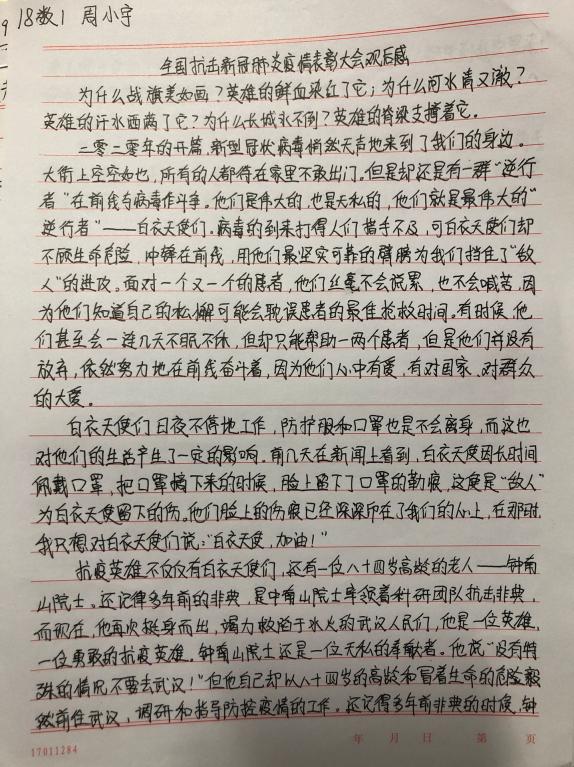 18数1 周小宇
全国抗击新冠肺炎疫情表彰大会观后感
为什么战旗美如画？英雄的鲜血染红了它；为什么河水清又澈？
英雄的汗水洒满了它？为什么长城永不倒？英雄的脊梁支撑着它。
二零二零年的开篇，新型冠状病毒悄然无声地来到了我们的身边。
大街上空空如也，所有的人都待在家里不敢出门。但是却还是有一群“逆行
者”在前线与病毒作斗争。他们是伟大的，也是无私的，他们就是最伟大的“
逆行者”——白衣天使们。病毒的到来打得人们措手不及，可白衣天使们却
不顾生命危险，冲锋在前线，用他们最坚实可靠的臂膀为我们挡住了“敌
人”的进攻。面对一个又一个的患者，他们丝毫不会说累，也不会喊苦，因
为他们知道自己的松懈可能会耽误患者的最佳抢救时间。有时候，他
们甚至会一连几天不眠不休，但却只能帮助一两个患者，但是他们并没有
放弃，依然努力地在前线奋斗着，因为他们心中有爱，有对国家、对群众
的大爱。
白衣天使们日夜不停地工作，防护服和口罩也是不会离身，而这也
对他们的生活产生了一定的影响。前几天在新闻上看到，白衣天使因长时间
佩戴口罩，把口罩摘下来的时候，脸上留下了口罩的勒痕，这便是“敌人”
为白衣天使留下的伤。他们脸上的伤痕已经深深印在了我们的心上，在那时，
我只想对白衣天使们说：“白衣天使，加油！”
抗疫英雄不仅仅有白衣天使们，还有一位八十四岁高龄的老人——钟南
山院士。还记得多年前的非典，是中南山院士率领着科研团队抗击非典，
而现在，他再次挺身而出，竭力救陷于水火的武汉人民们，他是一位英雄，
一位勇敢的抗疫英雄。钟南山院士还是一位无私的奉献者。他说“没有特
殊的情况不要去武汉！”但他自己却以八十四岁的高龄和冒着生命的危险毅
然前往武汉，调研和指导防控疫情的工作。还记得多年前非典的时候，钟
17011284
年 月 日 第 页